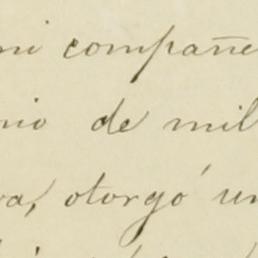 mi compañe
nio de mil
va, otorgó un